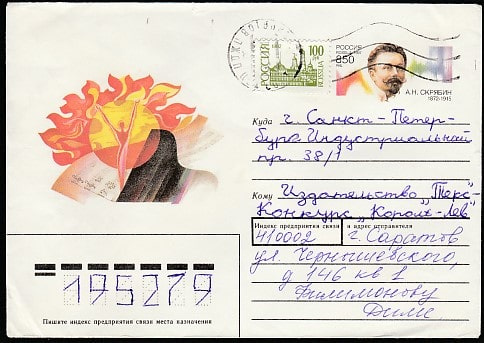 РОССИЯ
100
ROSSIJA
РОССИЯ
850
А.Н. СКРЯБИН
1872-1915
Куда г. Санкт-Петер-
бург Индустриальный
пр. 38/1
Кому Издательство „Терс"
Конкурс „Король-Лев"
Индекс предприятия связи и адрес отправителя
410002 г. Саратов
ул. Чернышевского,
д 146 кв 1
Филимонову
Диме
195279
Пишите индекс предприятия связи места назначения